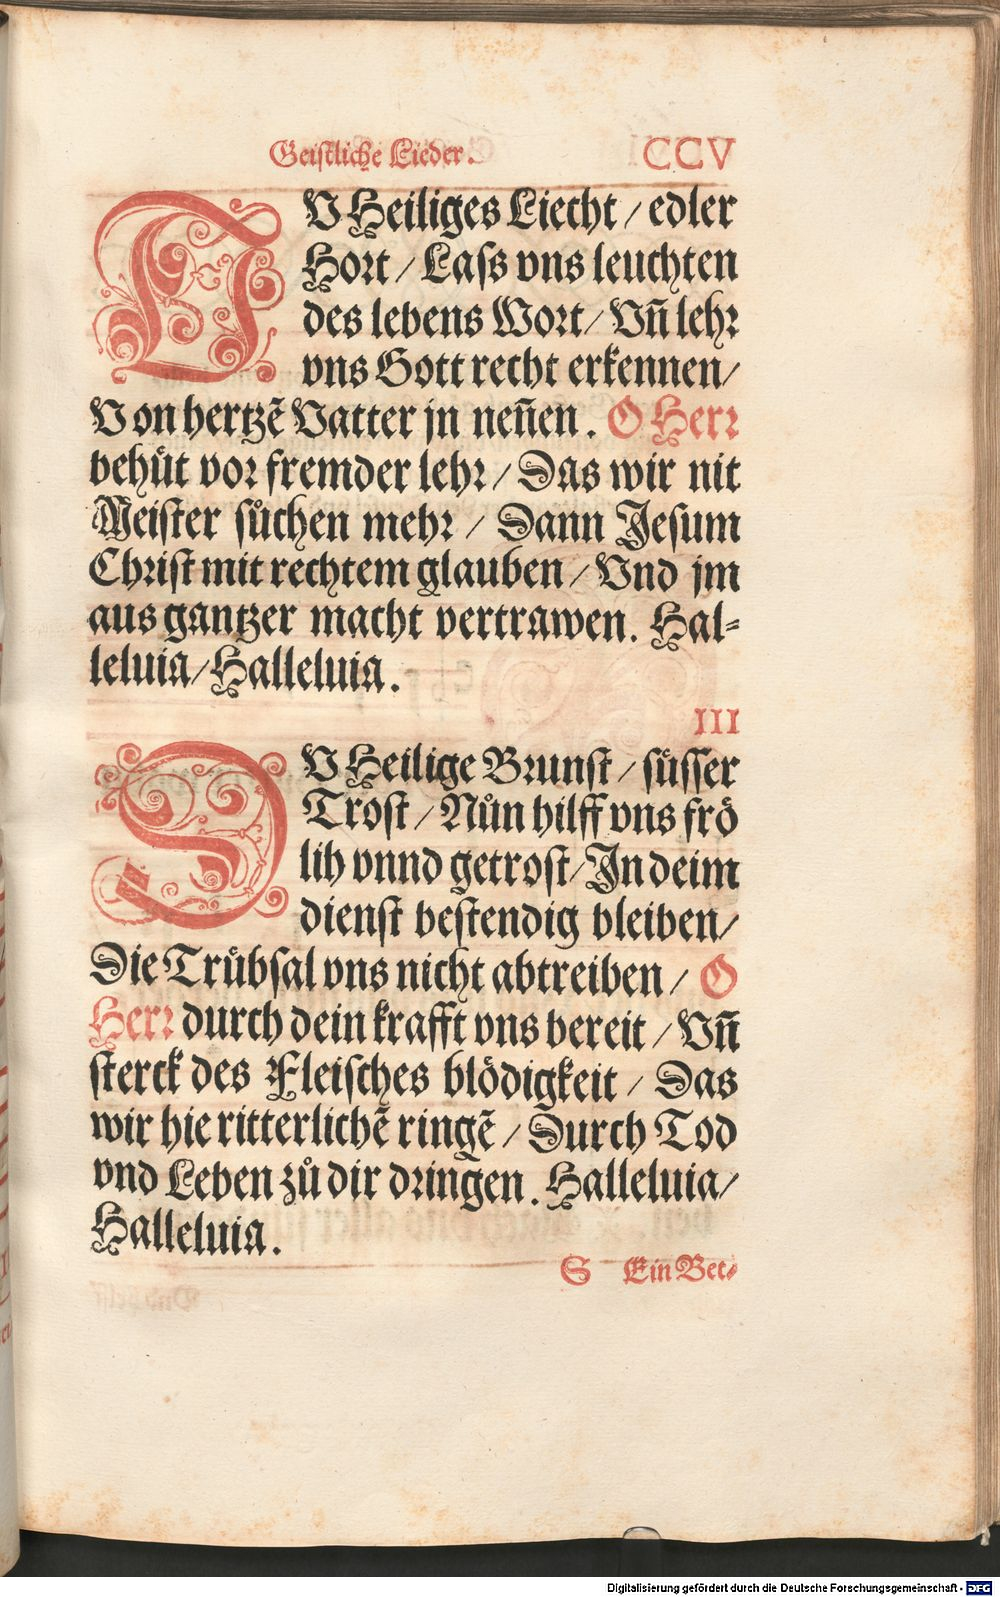 Geistliche Lieder. CCV
DV Heiliges Liecht / edler
Hort / Lass vns leuchten
des lebens Wort / Vn̄ lehr
vns Gott recht erkennen /
Von hertzē Vatter jn neñen. O Herr
behüt vor fremder lehr / Das wir nit
Meister sůchen mehr / Dann Jesum
Christ mit rechtem glauben / Vnd jm
aus gantzer macht vertrawen. Hal-
leluia / Halleluia.
III
DV Heilige Brunst / süsser
Trost / Nůn hilff vns frö
lih vnnd getrost / In deim
dienst bestendig bleiben /
Die Trübsal vns nicht abtreiben / O
Herr durch dein krafft vns bereit / Vn̄
sterck des Fleisches blödigkeit / Das
wir hie ritterlichē ringē / Durch Tod
vnd Leben zů dir dringen. Halleluia /
Halleluia.
S Ein Bet-
Digitalisierung gefördert durch die Deutsche Forschungsgemeinschaft - DFG